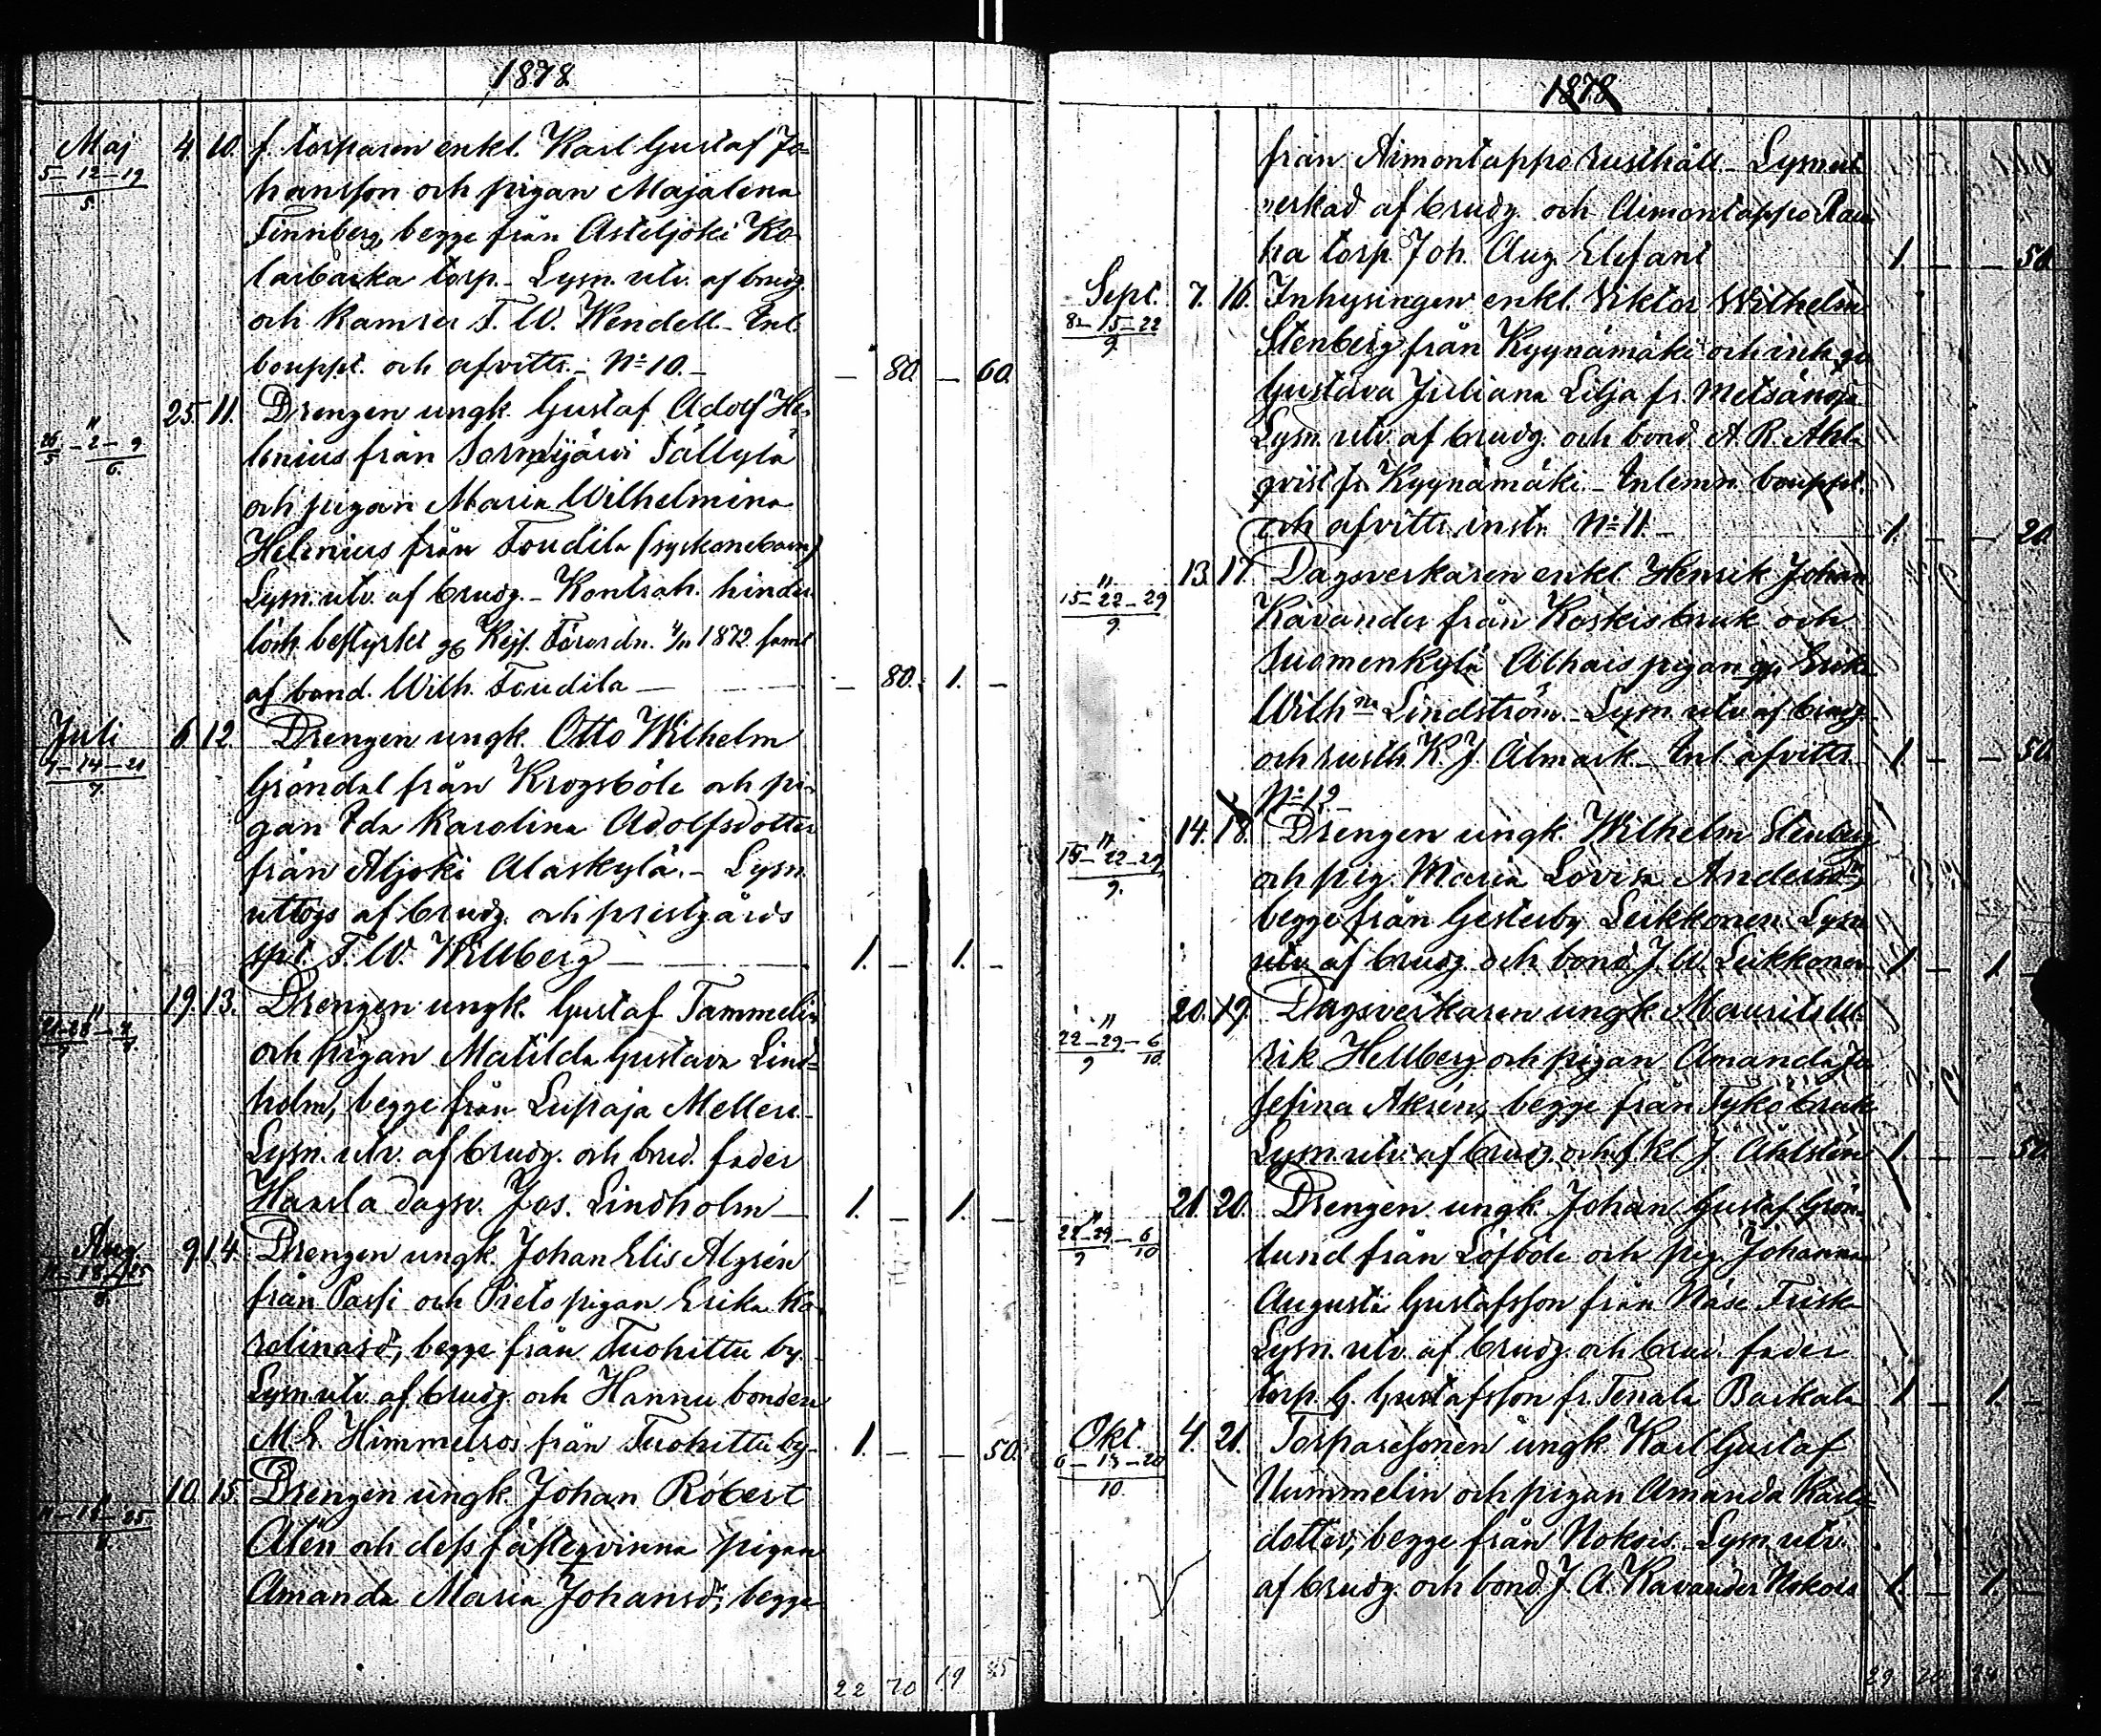 1878
Maj 4. 10. f. torparen enkl. Karl Gustaf Jo-
5-12-19 hansson och pigan Majalena
5. Finnberg, begge från Asteljoki Ko-
torp. Lysn. utv. af brudg.
och kamrer F. W. Wendell. Inl.
bouppt. och afvittr. No 10. — 80. — 60.
" 25. 11. Drengen ungk. Gustaf Adolf He-
26/5 - 2 - 9/6 lenius från Sormijärvi Tällylä
och pigan Maria Wilhelmina
Helenius från Toudila (syskonebarn)
Lysn. utv. af brudg. Kontrah. hinder
löshet bestyrkt gm Kejs. Förordn. 1872 samt
af bond. Wilh. Toudila — 80. 1. —
Juli 6 12. Drengen ungk. Otto Wilhelm
7-14-21 Gröndal från Krogsböle och pi-
7. gan Ida Karolina Adolfsdotter
från Aljoki Alaskylä. Lysn.
uttogs af brudg. och prestgårds
F. W. Willberg 1. — 1. —
" 19. 13. Drengen ungk. Gustaf Tammelin
21-28/7 - 4/8. och pigan Matilda Gustava Lind-
holm, begge från Lupaja Melleri
Lysn. utv. af brudg. och brud. fader
dagsv. Jos. Lindholm 1. — 1. —
Aug. 9. 14. Drengen ungk. Johan Elis Algrén
11-18-25 från Passi och Prets pigan Erika Ka-
8 rolinasdr, begge från Tuohittu by.
Lysn. utv. af brudg. och Hannu bonden
M. E. Himmelros från Tuohittu by. 1. — — 50.
10. 15. Drengen ungk. Johan Robert
11-18-25 Alén och dess fästeqvinna pigan
8. Amanda Maria Johansdr, begge
22 70 19 85
1878
från Aimontappo rusthåll. Lysn. ut-
verkad af brudg. och Aimontappo Rau-
ha torp. Joh. Aug. Elefant 1. — — 50
Sept. 7. 16. Inhysingen enkl. Viktor Wilhelm
8-15-22 Stenberg från Kyynämäki och
9. Gustava Juliana Lilja fr. Metsänoja
Lysn. utv. af brudg. och bond. A. R. Ahl-
qvist fr. Kyynämäki. Inlemn. bouppt.
och afvittr. instr. No 11. 1. — — 20
" 13. 17. Dagsverkaren enkl. Henrik Johan
15-22-29 Kavander från Koskis bruk och
9. Suomenkylä Alhais pigan Erika
Wilhna Lindström. Lysn. utv. af brudg.
och rusth. K. J. Almark. Inl. afvittr. 1. — — 50.
No 12
" 14. 18. Drengen ungk. Wilhelm Stenberg
15-22-29 och pig. Maria Lovisa Andersdr,
9. begge från Gesterby Leikkonen. Lysn.
utv. af brudg. och bond. J. W. Leikkonen 1. — 1. —
" 20. 19. Dagsverkaren ungk. Maurits Ul-
22-29/9 - 6/10. rik Hellberg och pigan Amanda Jo-
sefina Akrén, begge från Tykö bruk
Lysn. utv. af brudg. och f. kl. J. Ahlstén 1. — — 50
" 21. 20. Drengen ungk. Johan Gustaf Grön-
22-29/9 - 6/10 lund från Löfböle och pig. Johanna
Augusta Gustafsson från Näse Frisk
Lysn. utv. af brudg. och brud. fader
torp. G. Gustafsson fr. Terrala Barkala 1. — 1. —
Okt. 4. 21. Torparesonen ungk. Karl Gustaf
6-13-20 Nummelin och pigan Amanda Karls-
10. dotter, begge från Nokois. Lysn. utv.
af brudg. och bond. J. A. Kavander Nokois 1. — 1. —
29